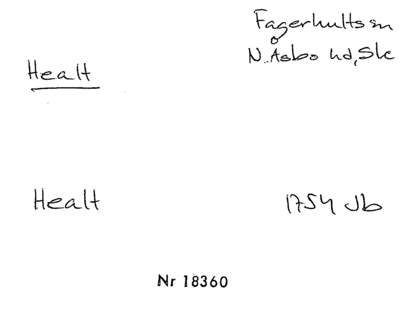 Fagerhults sn
Healt
N. Åsbo hd, Sk
Healt
1754 Jb
Nr 18360